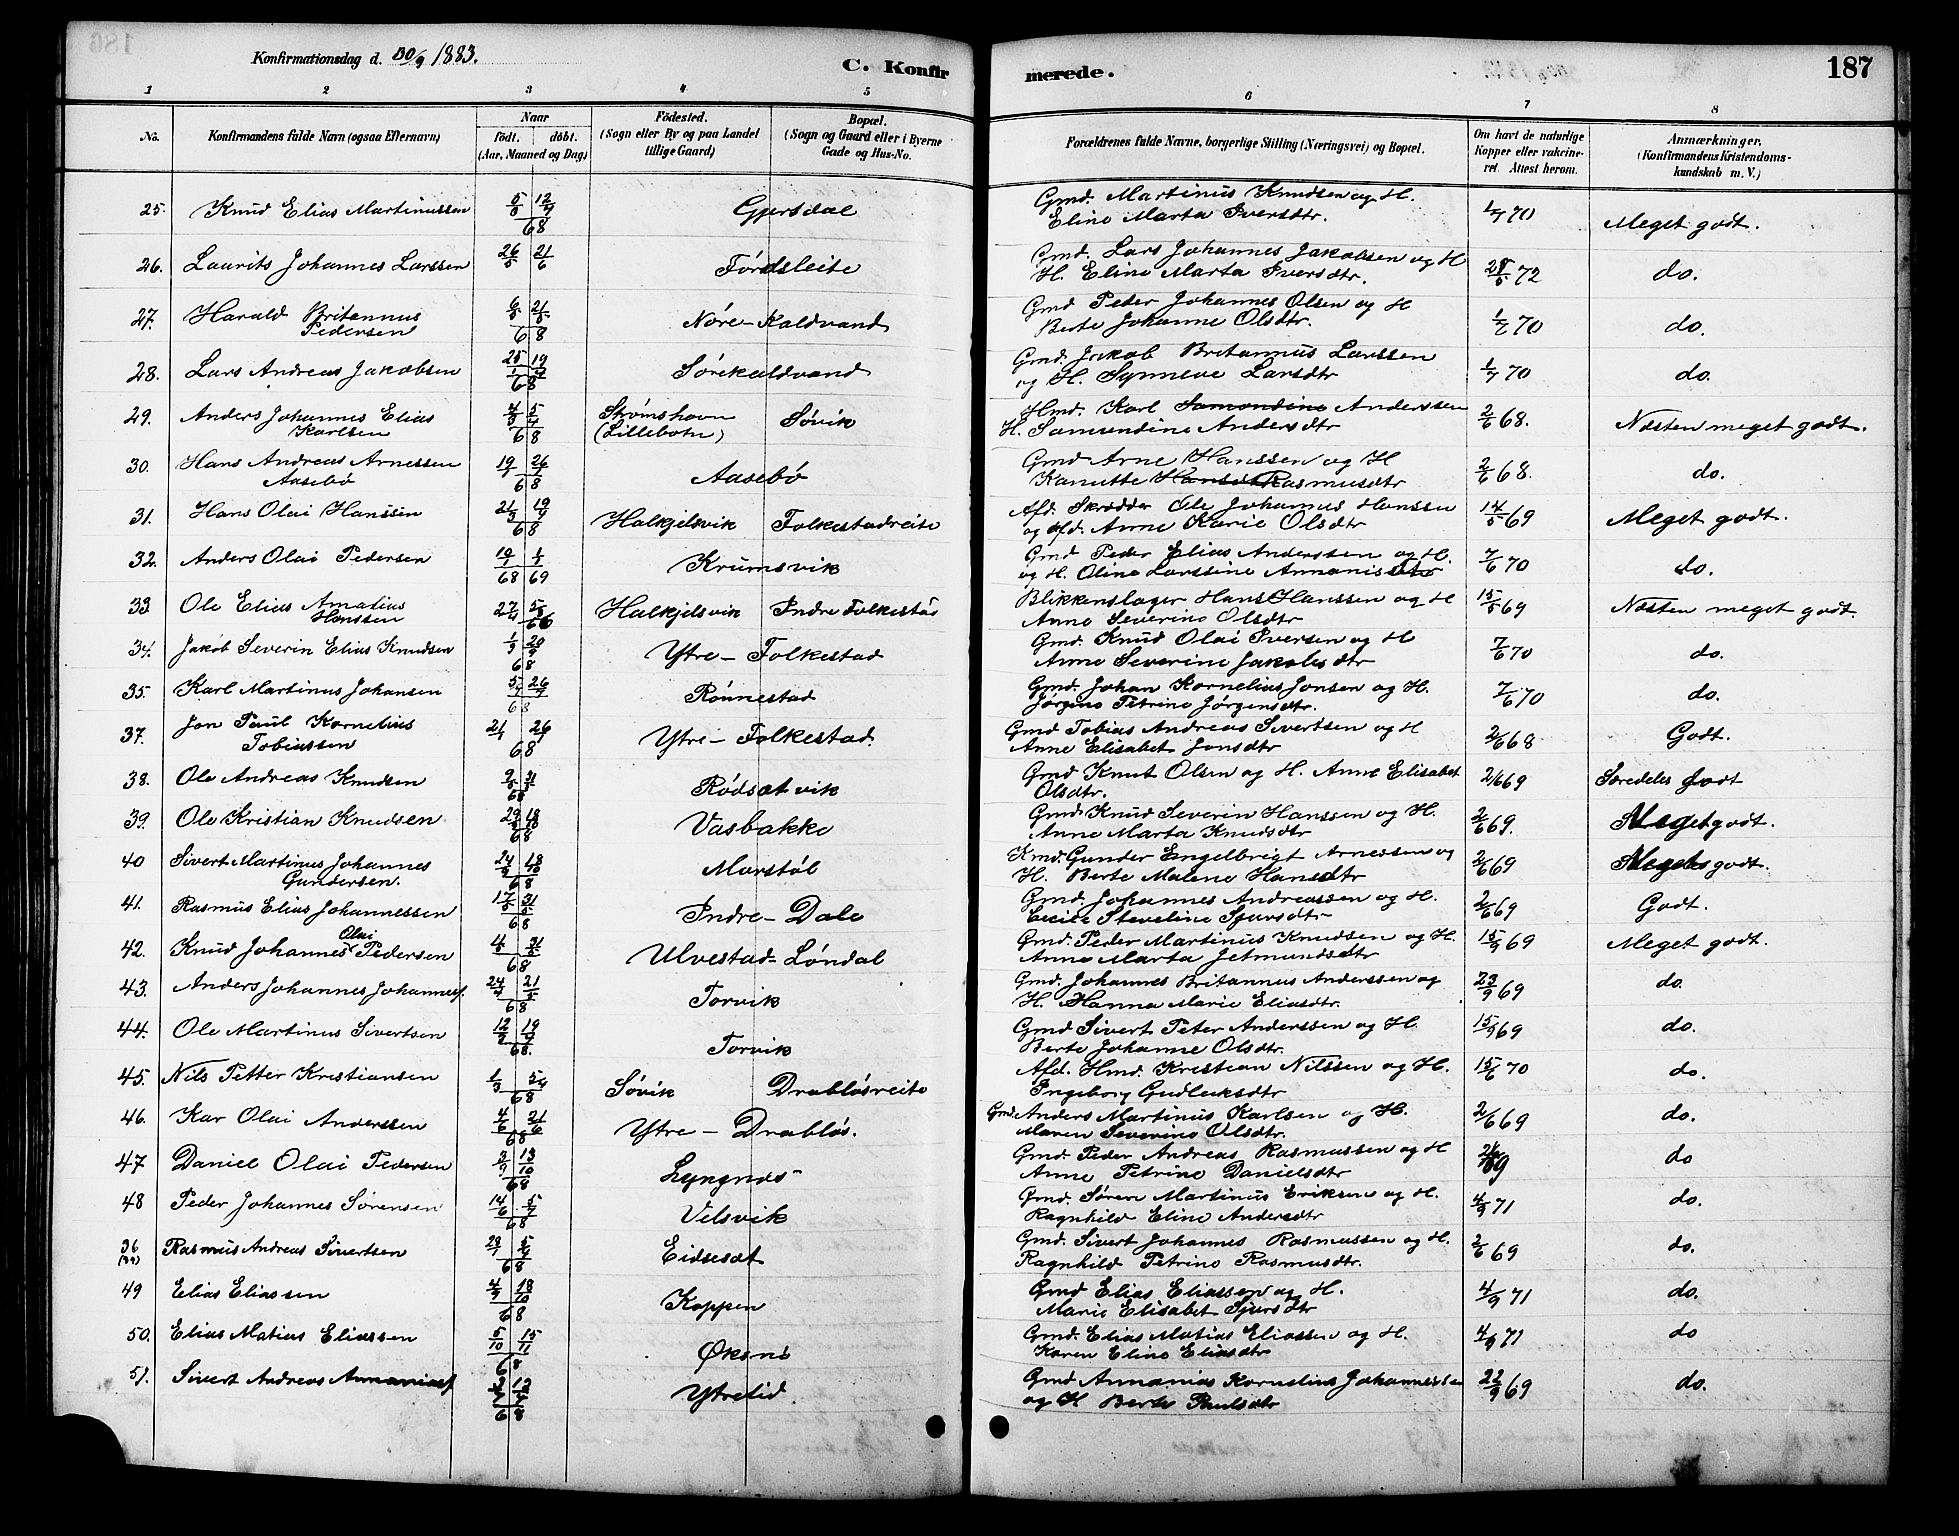 Konfirmationsdag d. 30/9 1883.
C. Konfirmerede.
187
1 2 3 4 5 6 7 8
No. Konfirmandens fulde Navn (ogsaa Efternavn)
Naar
födt. döbt.
(Aar, Maaned og Dag)
Födested.
(Sogn eller By og paa Landet
tillige Gaard)
Bopæl.
(Sogn og Gaard eller i Byerne
Gade og Hus-No.
Forældrenes fulde Navne, borgerlige Stilling (Næringsvei) og Bopæl.
Om havt de naturlige
Kopper eller vakcine-
ret. Attest herom.
Anmærkninger.
(Konfirmandens Kristendoms-
kundskab m. V.)
25. Knud Elias Martinussen 12/4 68 Gjersdal Gmd. Martinus Knudsen og H. 1/7 70 Meget godt.
Eline Marta Iversdtr.
26. Laurits Johannes Larssen 26/5 21/6 Førdsleite Gmd. Lars Johannes Jakobsen og H
H. Eline Marta Iversdtr. 72 do.
27. Harald Britannus Pedersen 68 Nøre-Kaldvand Gmd Peder Johannes Olsen og H
Berte Johanne Olsdtr. 70 do.
28. Lars Andreas Jakobsen 68 Sørekaldvand Gmd. Jakob Britannus Larssen
og H. Synneve Larsdtr 1/7 70 do.
29. Anders Johannes Elias Karlsen 68 Strømshavn (Lillebotn) Søvik Hmd. Karl Samundine Anderssen
H. Samundine Andersdtr 2/6 68. Næsten meget godt.
30. Hans Andreas Arnessen Aasebø 68 Aasebø Gmd Arne Hanssen og H
Kanutte Hansdtr Rasmusdtr 2/6 68. do.
31. Hans Olai Hanssen 68 Halkjelsvik Folkestadreite Afd. Skrædder Ole Johannes Hanssen
og Afd. Anne Karie Olsdtr 14/5 69 Meget godt.
32. Anders Olai Pedersen 68 69 Krumsvik Gmd Peder Elias Anderssen og H.
og H. Oline Larssine Annanisdtr 7/6 70 do.
33. Ole Elias Amatius Hanssen 66 Halkjelsvik Indre Folkestad Blikkenslager Hans Hanssen og H
Anne Severine Olsdtr 15/5 69 Næsten meget godt.
34. Jakob Severin Elias Knudsen 68 Ytre-Folkestad Gmd. Knud Olai Iversen og H
Anne Severine Jakobsdtr 7/6 70 do.
35. Karl Martinus Johansen 68 Rønnestad Gmd. Johan Kornelius Jonsen og H.
Jørgine Petrine Jørgensdtr. 7/6 70 do.
37. Jon Paul Kornelius Tobiassen 68 Ytre-Folkestad. Gmd Tobias Andreas Sivertsen og H
Anne Elisabet Jonsdtr 2/6 68 Godt.
38. Ole Andreas Knudsen 68 Rødsætvik Gmd Knut Olsen og H. Anne Elisabet
Olsdtr. 2/6 69 Særdeles godt
39. Ole Kristian Knudsen 68 Vasbakke Gmd. Knud Severin Hanssen og H.
Anne Marta Knudsdtr 2/6 69. Meget godt.
40 Sivert Martinus Johannes Gundersen. 68 Marstøl Kmd. Gunder Engelbrigt Arnessen og
H. Berte Malene Hansdtr 2/6 69 Meget godt.
41. Rasmus Elias Johannessen 68 Indre-Dale Gmd. Johannes Andreassen og H.
Cecilie Steveline Sjursdtr 2/6 69 Godt.
42. Knud Johannes Olai Pedersen 68 Ulvestad-Løndal Gmd. Peder Martinus Knudsen og H.
Anne Marta Jetmundsdtr 15/9 69 Meget godt.
43. Anders Johannes Johannesf. 68 Torvik Gmd. Johannes Britannus Anderssen og
H. Hanna Marie Eliasdtr. 23/9 69 do.
44. Ole Martinus Sivertsen 68. Torvik Gmd Sivert Peter Anderssen og H.
Berte Johanne Olsdtr. 15/9 69 do.
45. Nils Petter Kristiansen 68 Søvik Drabløsreite Afd. Hmd. Kristian Nilssen og H.
Ingeborg Gudleiksdtr 15/6 70 do.
46. Kar Olai Anderssen 4/6 21/6 68 Ytre-Drabløs. Gmd. Anders Martinus Karlsen og H.
Maren Severine Olsdtr. 2/6 69 do.
47 Daniel Olai Pedersen 3/9 13/10 68 Lyngnes Gmd. Peder Andreas Rasmussen og H
Anne Petrine Danielsdtr 69 do
48 Peder Johannes Sørensen 14/6 5/7 68 Velsvik Gmd. Søren Martinus Eriksen og H.
Ragnhild Eline Andersdtr 4/9 71 do.
36 Rasmus Andreas Sivertsen 68 Eidsesæt Gmd. Sivert Johannes Rasmussen og H.
Ragnhild Petrine Rasmusdtr. 2/6 69 do.
49 Elias Eliassen 4/9 18/10 68 Koppen Gmd Elias Eliassen og H.
Marie Elisabet Sjursdtr 4/9 71 do.
50. Elias Matias Eliassen 5/10 15/11 68 Øksnø Gmd. Elias Matias Eliassen og H.
Karen Eline Eliasdtr 4/9 71 do
51. Sivert Andreas Annaniasf. 68 Ytrelid. Gmd Annanias Kornelius Johannessen
og H Berte Paulsdtr 22/9 69 do.